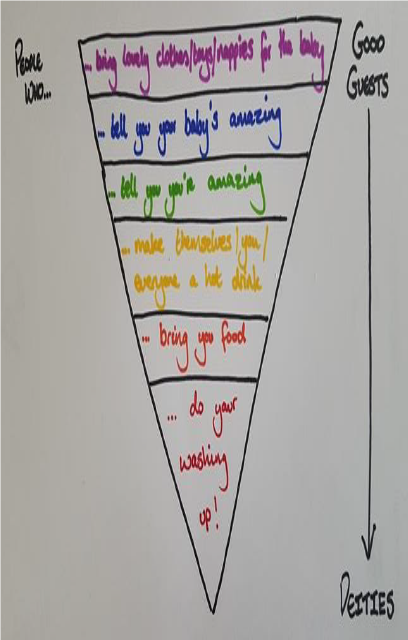 PEOPLE
WHO...
GOOD
GUESTS
... bring lovely clothes/toys/nappies for the baby
... tell you your baby's amazing
... tell you you're amazing
... make themselves/you/
everyone a hot drink
... bring you food
... do your
washing
up!
DEITIES